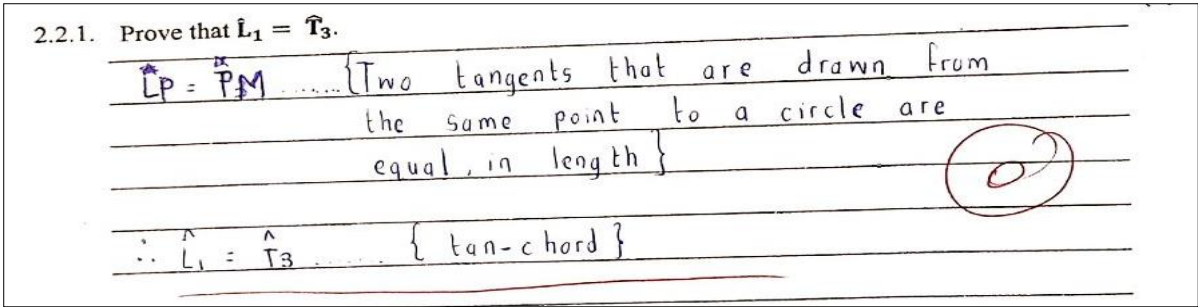 2.2.1. Prove that L̂₁ = T̂₃.
LP = PM ....... {Two tangents that are drawn from
the same point to a circle are
equal, in length}
∴ L̂₁ = T̂₃ ....... { tan-chord }